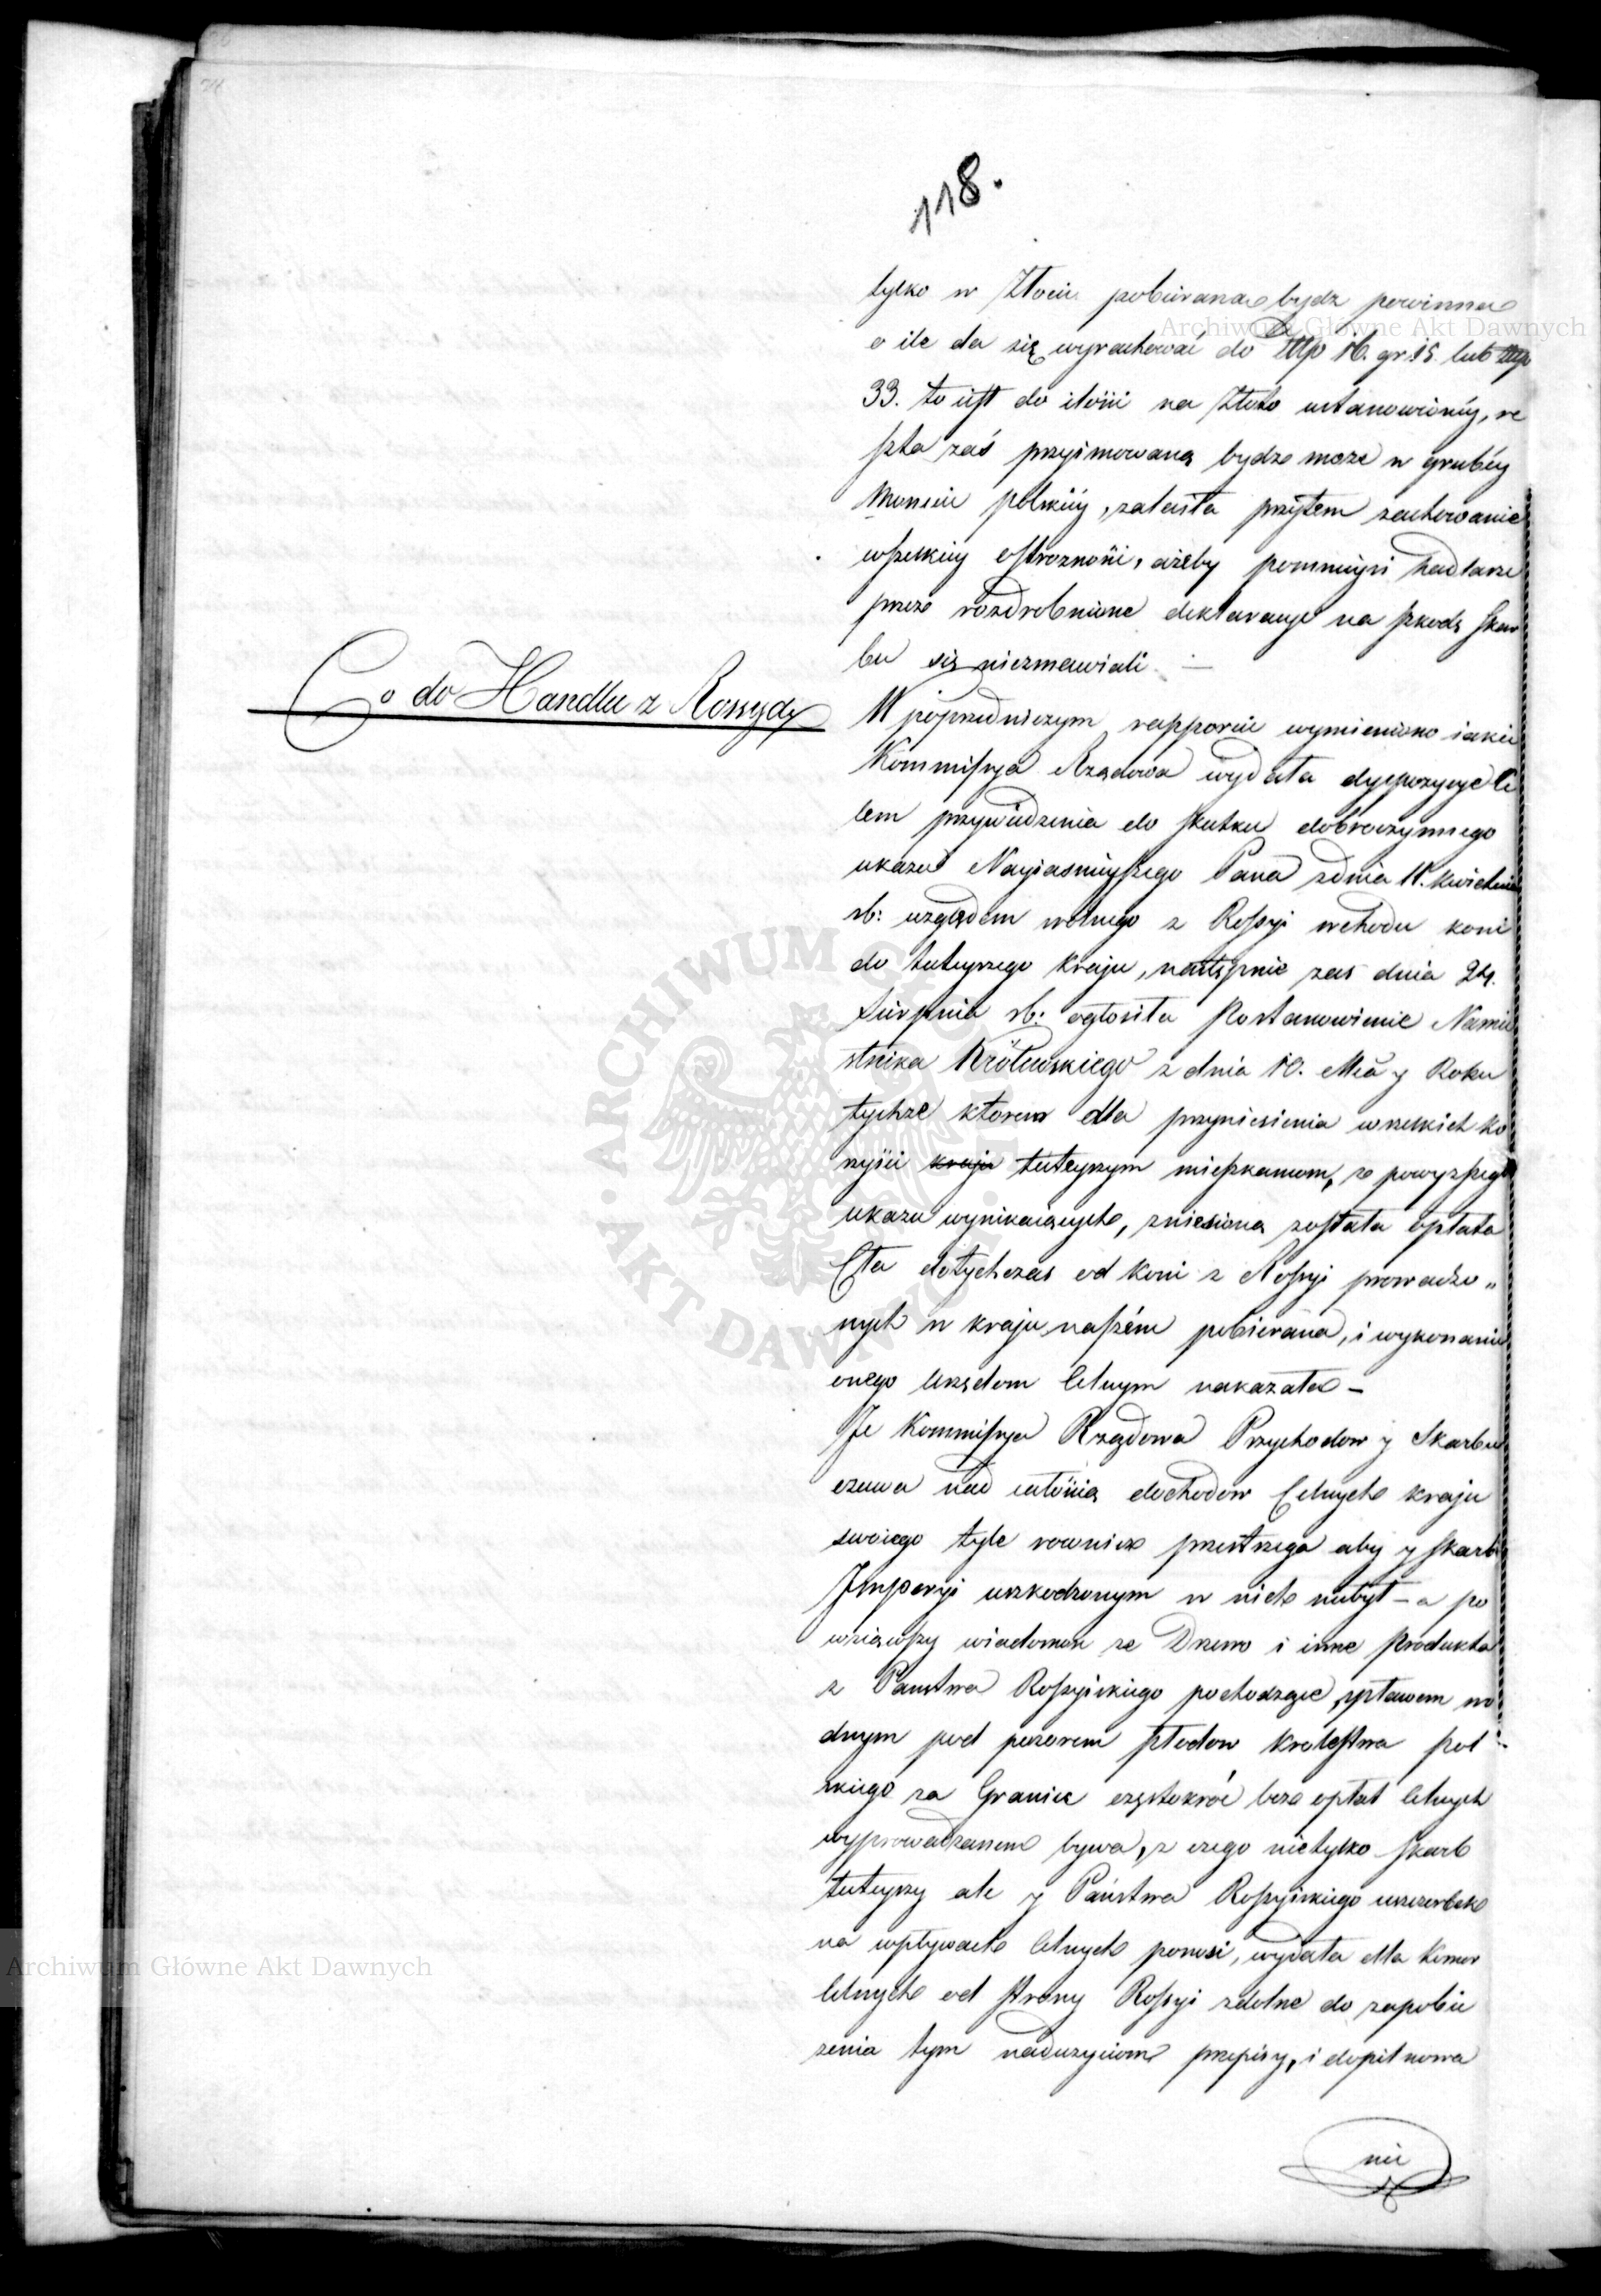 118.
tylko w Złocie pobierana bydz powinna
o ile da się wyrachować do Złtp 16. gr 15. lub Złtp
33. to iest do ilości na Złoto ustanowionéy, re
szta zaś przyimowaną bydz może w grubéy
Monecie polskiéy, zaleciła przytem zachowanie
wszelkiey ostrożności, ażeby pomnieysi handlarze
przez rozdrobnione deklaracye na szkodę Skar
bu się niezmawiali —
Co do Handlu z Rossyą
W poprzedniczym rapporcie wymieniono iakie
Kommissya Rządowa wydała dyspozycye Ce
lem przywiedzenia do skutku dobroczynnego
ukazu Nayiasnieyszego Pana z dnia 11. kwietnia
rb: względem wolnego z Rossyi wchodu koni
do tuteyszego kraju, następnie zas dnia 24.
Sierpnia rb: ogłosiła Postanowienie Namie
stnika Królewskiego z dnia 10. Mca y Roku
tychże ktorem dla przyniesienia wszelkich ko
rzyści kraju tuteyszym mieszkancom, z powyzszego
ukazu wynikaiących, zniesioną została opłata
Cła dotychczas od koni z Rossyi prowadzo„
nych w kraju naszém pobierana, i wykonanie
onego Urzędom Celnym nakazała —
Je Kommissya Rządowa Przychodow y Skarbu
czuwa nad całością dochodow Celnych kraju
swoiego tyle rowniez przestrzega aby y Skarb
Imperyi uszkodzonym w nich niebył — a po
wziąwszy wiadomosc ze Drzewo i inne Produkta
z Panstwa Rossyiskiego pochodzące, spławem wo
dnym pod pozorem płodow Krolestwa Pol
skiego za Granice częstokroć bez opłat Celnych
wyprowadzanem bywa, z czego nietylko Skarb
tuteyszy ale y Państwa Rossyiskiego uszczerbek
na wpływach Celnych ponosi, wydała dla Komor
Celnych od strony Rossyi zdolne do zapobie
zenia tym nadużyciom przepisy, i dopilnowa
nie